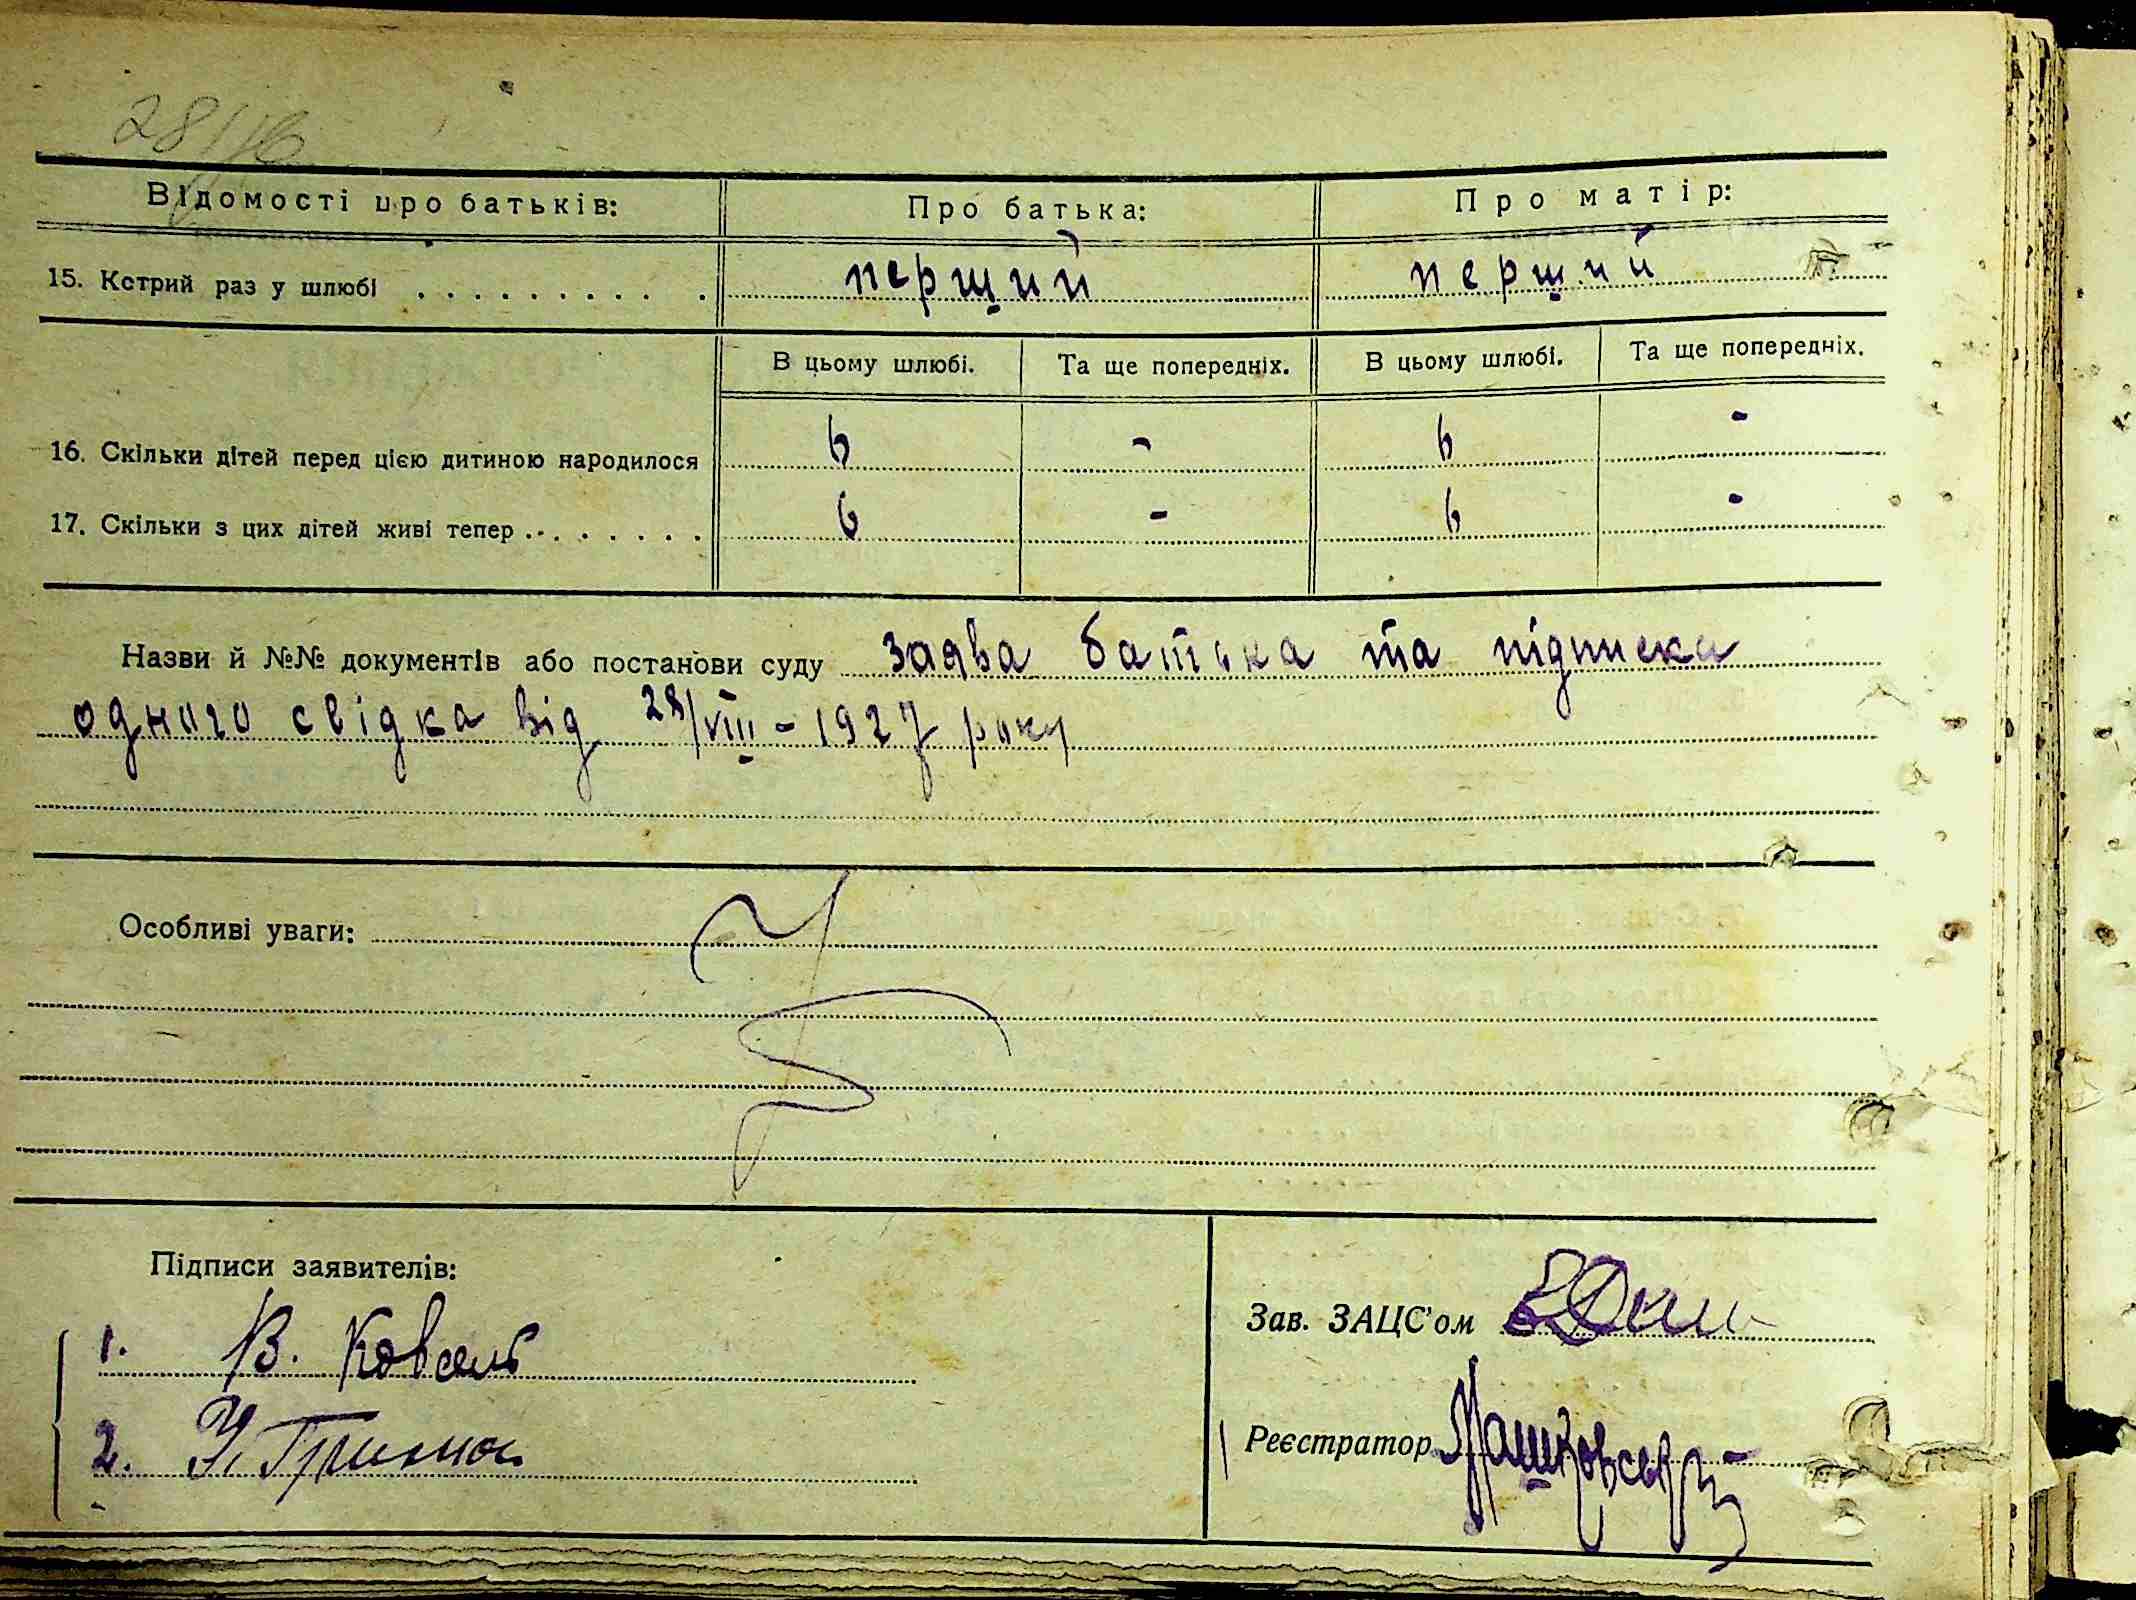 Відомості про батьків: Про батька: Про матір:
15. Котрий раз у шлюбі перший перший
В цьому шлюбі. Та ще попередніх. В цьому шлюбі. Та ще попередніх.
16. Скільки дітей перед цією дитиною народилося 6 - 6 -
17. Скільки з цих дітей живі тепер 6 - 6 -
Назви й №№ документів або постанови суду заява батька та підписка
одного свідка від 28/VIII - 1927 року
Особливі уваги:
Підписи заявителів:
1. В. Ковсель
2.
Зав. ЗАЦС'ом
Реєстратор